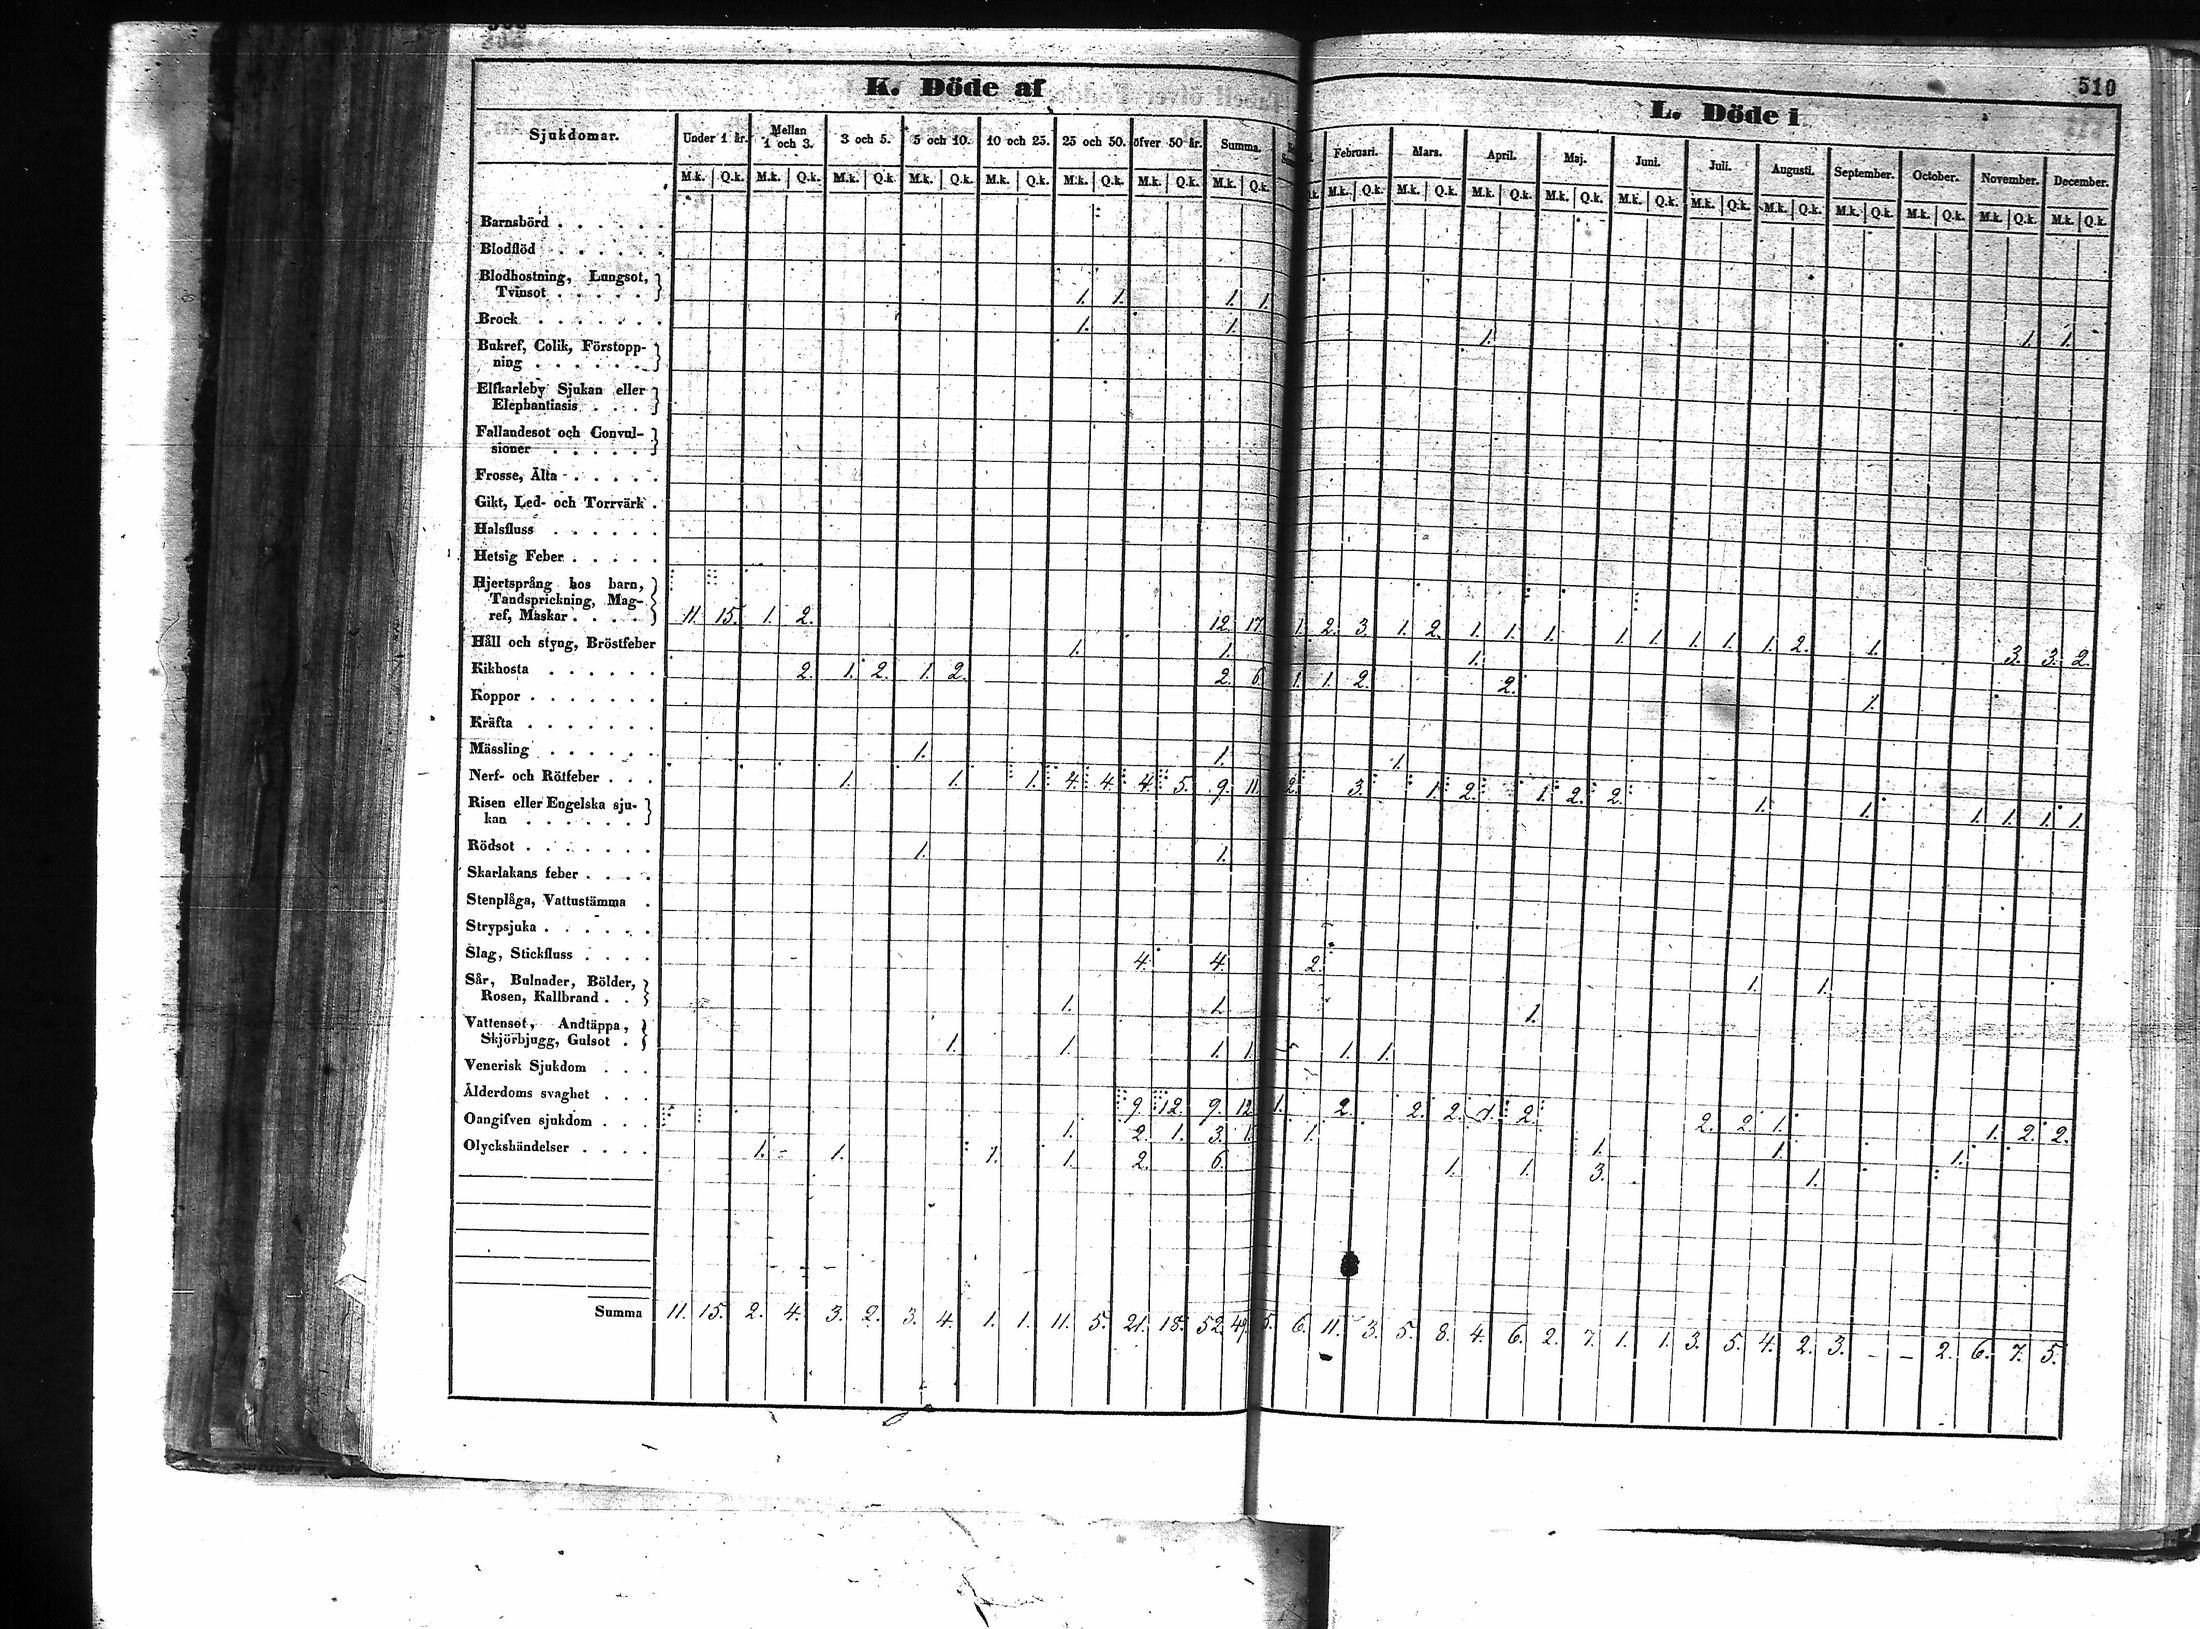 K. Döde af
L. Döde i
510
Sjukdomar. Under 1 år. Mellan 1 och 3. 3 och 5. 5 och 10. 10 och 25. 25 och 50. öfver 50 år. Summa. Februari. Mars. April. Maj. Juni. Juli. Augusti. September. October. November. December.
M.k. Q.k. M.k. Q.k. M.k. Q.k. M.k. Q.k. M.k. Q.k. M.k. Q.k. M.k. Q.k. M.k. Q.k. M.k. Q.k. M.k. Q.k. M.k. Q.k. M.k. Q.k. M.k. Q.k. M.k. Q.k. M.k. Q.k. M.k. Q.k. M.k. Q.k. M.k. Q.k. M.k. Q.k.
Barnsbörd . . . . . .
Blodflöd . . . . . .
Blodhostning, Lungsot,
Tvinsot . . . . . 1. 1. 1. 1. 1. 1. 1.
Brock . . . . . . . 1. 1.
Bukref, Colik, Förstopp-
ning . . . . . .
Elfkarleby Sjukan eller
Elephantiasis . . .
Fallandesot och Convul-
sioner . . . . .
Frosse, Älta . . . . .
Gikt, Led- och Torrvärk .
Halsfluss . . . . . .
Hetsig Feber . . . . .
Hjertsprång hos barn,
Tandsprickning, Mag-
ref, Maskar . . . . 11. 15. 1. 2. 12. 17. 1. 2. 3. 1. 2. 1. 1. 1. 1. 1. 1. 1. 1. 2. 1. 3. 3. 2.
Håll och styng, Bröstfeber 1. 1. 1.
Kikhosta . . . . . . 2. 1. 2. 1. 2. 2. 6. 1. 1. 2. 2. 1.
Koppor . . . . . . .
Kräfta . . . . . . .
Mässling . . . . . . 1. 1. 1.
Nerf- och Rötfeber . . . 1. 1. 1. 4. 4. 4. 5. 9. 11. 2. 3. 1. 2. 1. 2. 2. 1. 1. 1. 1. 1. 1.
Risen eller Engelska sju-
kan . . . . . .
Rödsot . . . . . . . 1. 1.
Skarlakans feber . . . .
Stenplåga, Vattustämma .
Strypsjuka . . . . . .
Slag, Stickfluss . . . . 4. 4. 2. 1. 1.
Sår, Bulnader, Bölder,
Rosen, Kallbrand . . 1. 1. 1.
Vattensot, Andtäppa,
Skjörbjugg, Gulsot . 1. 1. 1. 1. 1. 1.
Venerisk Sjukdom . . .
Ålderdoms svaghet . . . 9. 12. 9. 12. 1. 2. 2. 2. 2. 2. 2. 1. 1. 2. 2.
Oangifven sjukdom . . . 1. 2. 1. 3. 1. 1. 1. 1. 1.
Olyckshändelser . . . . 1. 1. 1. 1. 2. 6. 1. 1. 3. 1.
Summa 11. 15. 2. 4. 3. 2. 3. 4. 1. 1. 11. 5. 21. 18. 52. 49. 5. 6. 11. 3. 5. 8. 4. 6. 2. 7. 1. 1. 3. 5. 4. 2. 3. - - 2. 6. 7. 5.